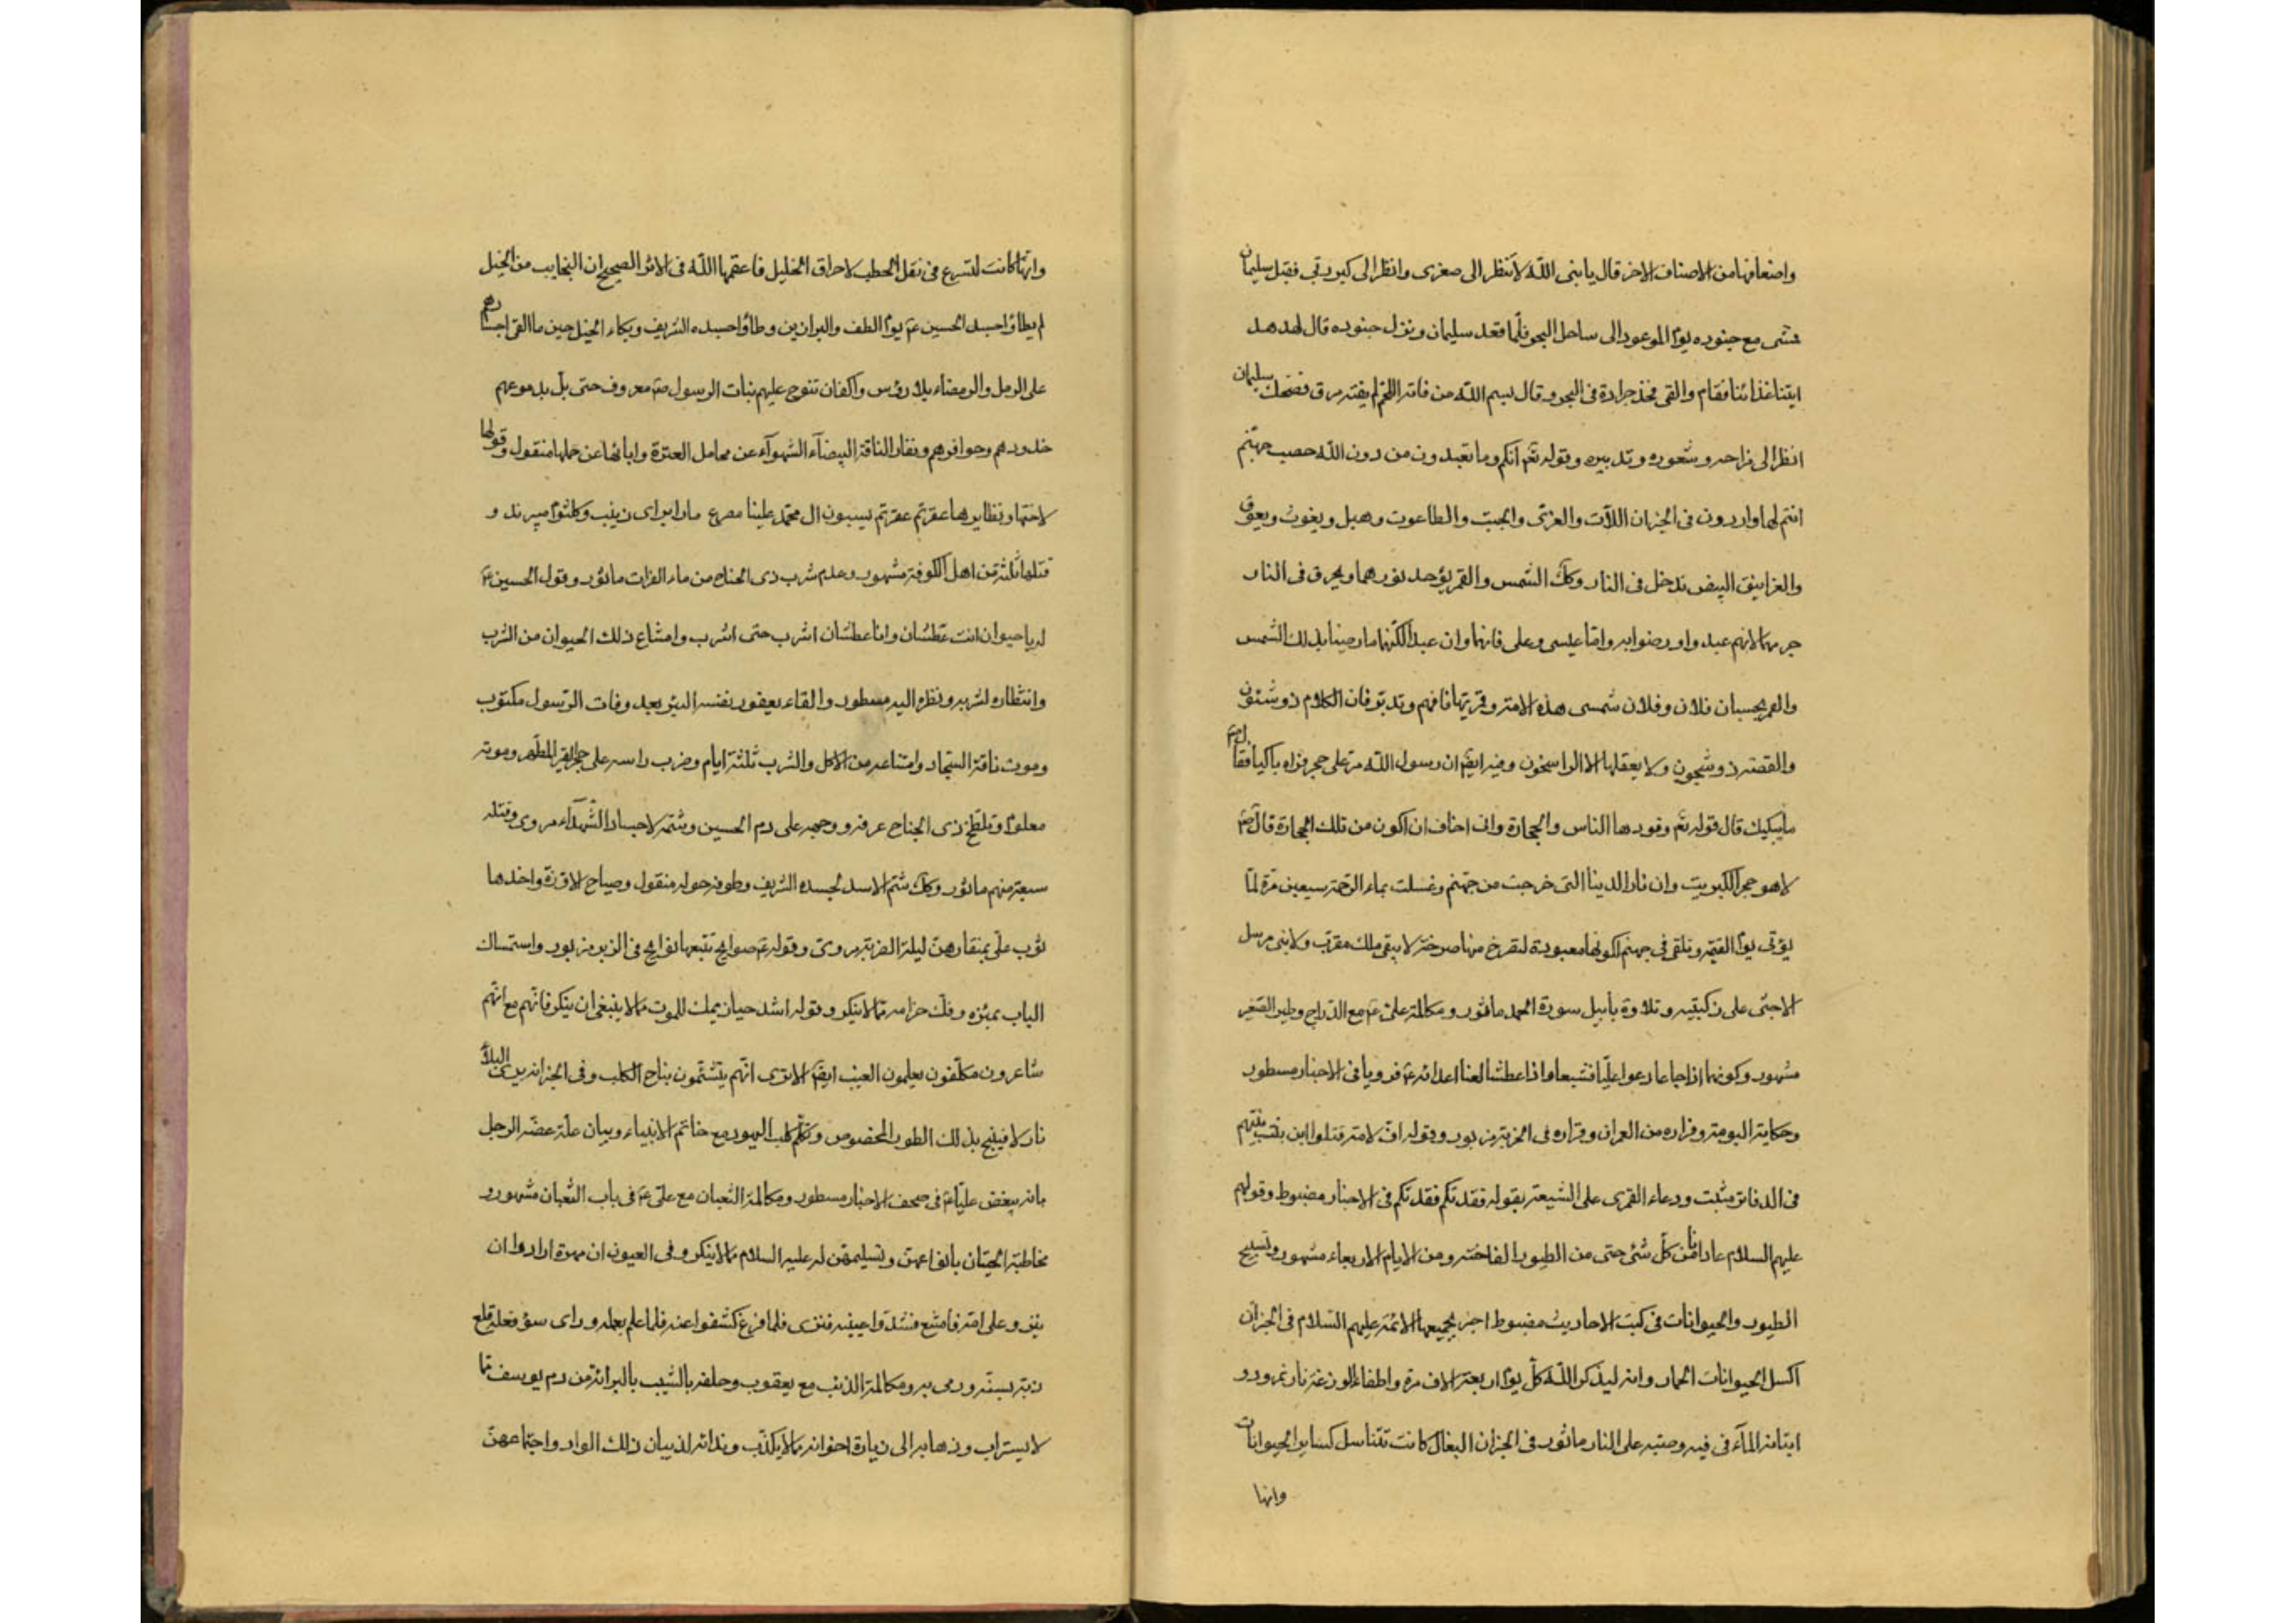 واضعافها من الاصناف الاخر قال يا نبى الله لا تنظر الى صغرى وانظر الى كبر رقى فقبل سليمان
فمشى مع جنوده يوم الموعود الى ساحل البحر فلما قعد سليمان ونزل جنوده قال لهدهد
ايتنا غذائنا فقام والقى فخذ جرادة فى البحر وقال بسم الله من فاته اللحم لم يفته مرق فضحك سليمان
انظر الى مزاحه وشعوره وتدبيره وقوله تعم انكم وما تعبدون من دون الله حصب جهنم
انتم لها واردون فى الخبر ان اللآت والعزى والجبت والطاغوت وهبل ويغوث ويعوق
والغرانيق البيض تدخل فى النار وكك الشمس والقمر يؤخذ نورهما ويحرق فى النار
جرمهما لانهم عبدوا ورضوا به واما عيسى وعلى فانهما وان عبدا لكنهما ما رضيا بذلك الشمس
والقمر بحسبان فلان وفلان شمسى هذه الامة وقمريها فافهم وتدبر فان الكلام ذو شئون
والقصة ذو شجون ولا يعقلها الا الراسخون وفيه ايضا ان رسول الله مر على حجر فراه باكيا فقال له
ما يبكيك قال قوله تعم وقودها الناس والحجارة وانى اخاف ان اكون من تلك الحجارة قال ص
لا هو حجر الكبريت وان نار الدنيا التى خرجت من جهنم وغسلت بماء الرحمة سبعين مرة لما
يؤتى يوم القيمة وتلقى فى جهنم لكونها معبودة لتصرخ منها صرخة لا يبقى ملك مقرب ولا نبى مرسل
الا جثى على ركبتيه وتلاوة بأبيل سورة الحمد ماثور ومكالمة على ع مع الدراج وطير الصغير
مشهور وكونهما اذا جاعا دعوا عليا فشبعا واذا عطشا لعنا اعدائه ع فرويا فى الاخبار مسطور
وحكاية البومة وفراره من العمران وقراره فى الخربة مزبور وقوله اف لامة قتلوا ابن بنت نبيهم
فى الدفاتر مثبت ودعاء القمرى على الشيعة بقوله فقدتكم فقدتكم فى الاخبار مضبوط وقولهم
عليهم السلام عادانا من كل شئ حتى من الطيور الفاختة ومن الايام الاربعاء مشهور وتسبيح
الطيور والحيوانات فى كتب الاحاديث مضبوط اخبر بجميعها الائمة عليهم السلام فى الخبر ان
اكسل الحيوانات الحمار وانه ليذكر الله كل يوم اربعة الاف مرة واطفاء الوزغة نار نمرود و
ايتانه المآء فى فيه وصبه على النار ماثور فى الخبر ان البغال كانت تتناسل كساير الحيوانات
وانها
وانها كانت لتسرع فى نقل الحطب لاحراق الخليل فاعقمها الله فى الاثر الصحيح ان النجايب من الخيل
لم يطاؤا جسد الحسين ع يوم الطف والبراذين وطاؤا جسده الشريف وبكاء الخيل حين ما القى اجسادهم
على الرمل والرمضاء بلا رؤس واكفان تنوح عليهم بنات الرسول ص معروف حتى بل بدموعهم
خدودهم وحوافرهم ونفار الناقة البيضآء الشهوآء عن محامل العترة وابائها عن حملها منقول وقولها
لاختها ونظايرها عقرتم عقرتم يسبون ال محمد علينا مصرع ماذا يراى زينب وكلثوم ميبرند و
قتلها ثلثة من اهل الكوفة مشهور وعدم شرب ذى الجناح من ماء الفرات ماثور وقول الحسين ع
له يا حيوان انت عطشان وانا عطشان اشرب حتى اشرب وامتناع ذلك الحيوان من الشرب
وانتظاره لشربه ونظره اليه مسطور والقاء يعفور نفسه البئر بعد وفات الرسول مكتوب
وموت ناقة السجاد وامتناعه من الاكل والشرب ثلثة ايام وضرب راسه على حجر القبر المطهر وموته
معلوم وتلطخ ذى الجناح عرفه ووجهه على دم الحسين وشمه لاجساد الشهدآء مروى وقتله
سبعة منهم ماثور وكك شم الاسد لجسده الشريف وطوفه حوله منقول وصياح الاوزة واخذها
ثوب على بمنقارهن ليلة الضربة مروى وقوله ع صوايح تتبعها نوايح فى الزبر مزبور واستمساك
الباب بمئزره وفك حزامه مما لا ينكر وقوله اشدد حيازيمك للموت مما لا ينبغى ان ينكر فانهم مع انهم
شاعرون مكلفون يعلمون الغيب ايضا الا ترى انهم يتشئمون بنباح الكلب وفى الخبر انه يرى البلآء
نازلا فينبح بذلك الطور المخصوص وتكلم كلب اليهود مع خاتم الانبياء وبيان علة عضه الرجل
بانه يبغض عليا ع فى صحف الاخبار مسطور ومكالمة الثعبان مع على ع فى باب الثعبان مشهور و
مخاطبة الحيتان بأنواعهن وتسليمهن له عليه السلام مما لا ينكر وفى العيون ان مهرة ارادوا ان
ينزو على امه فامتنع فشدوا عينيه فنزى فلما فرغ كشفوا عنه فلما علم بعمله وراى سوء فعله قلع
ذبه بسنه ورمى به ومكالمة الذئب مع يعقوب وحلفه بالشيب بالبرائة من دم يوسف مما
لا يستراب وذهابه الى زيارة اخوانه مما لا يكذب وندائه لذيبان ذلك الواد واجتماعهن